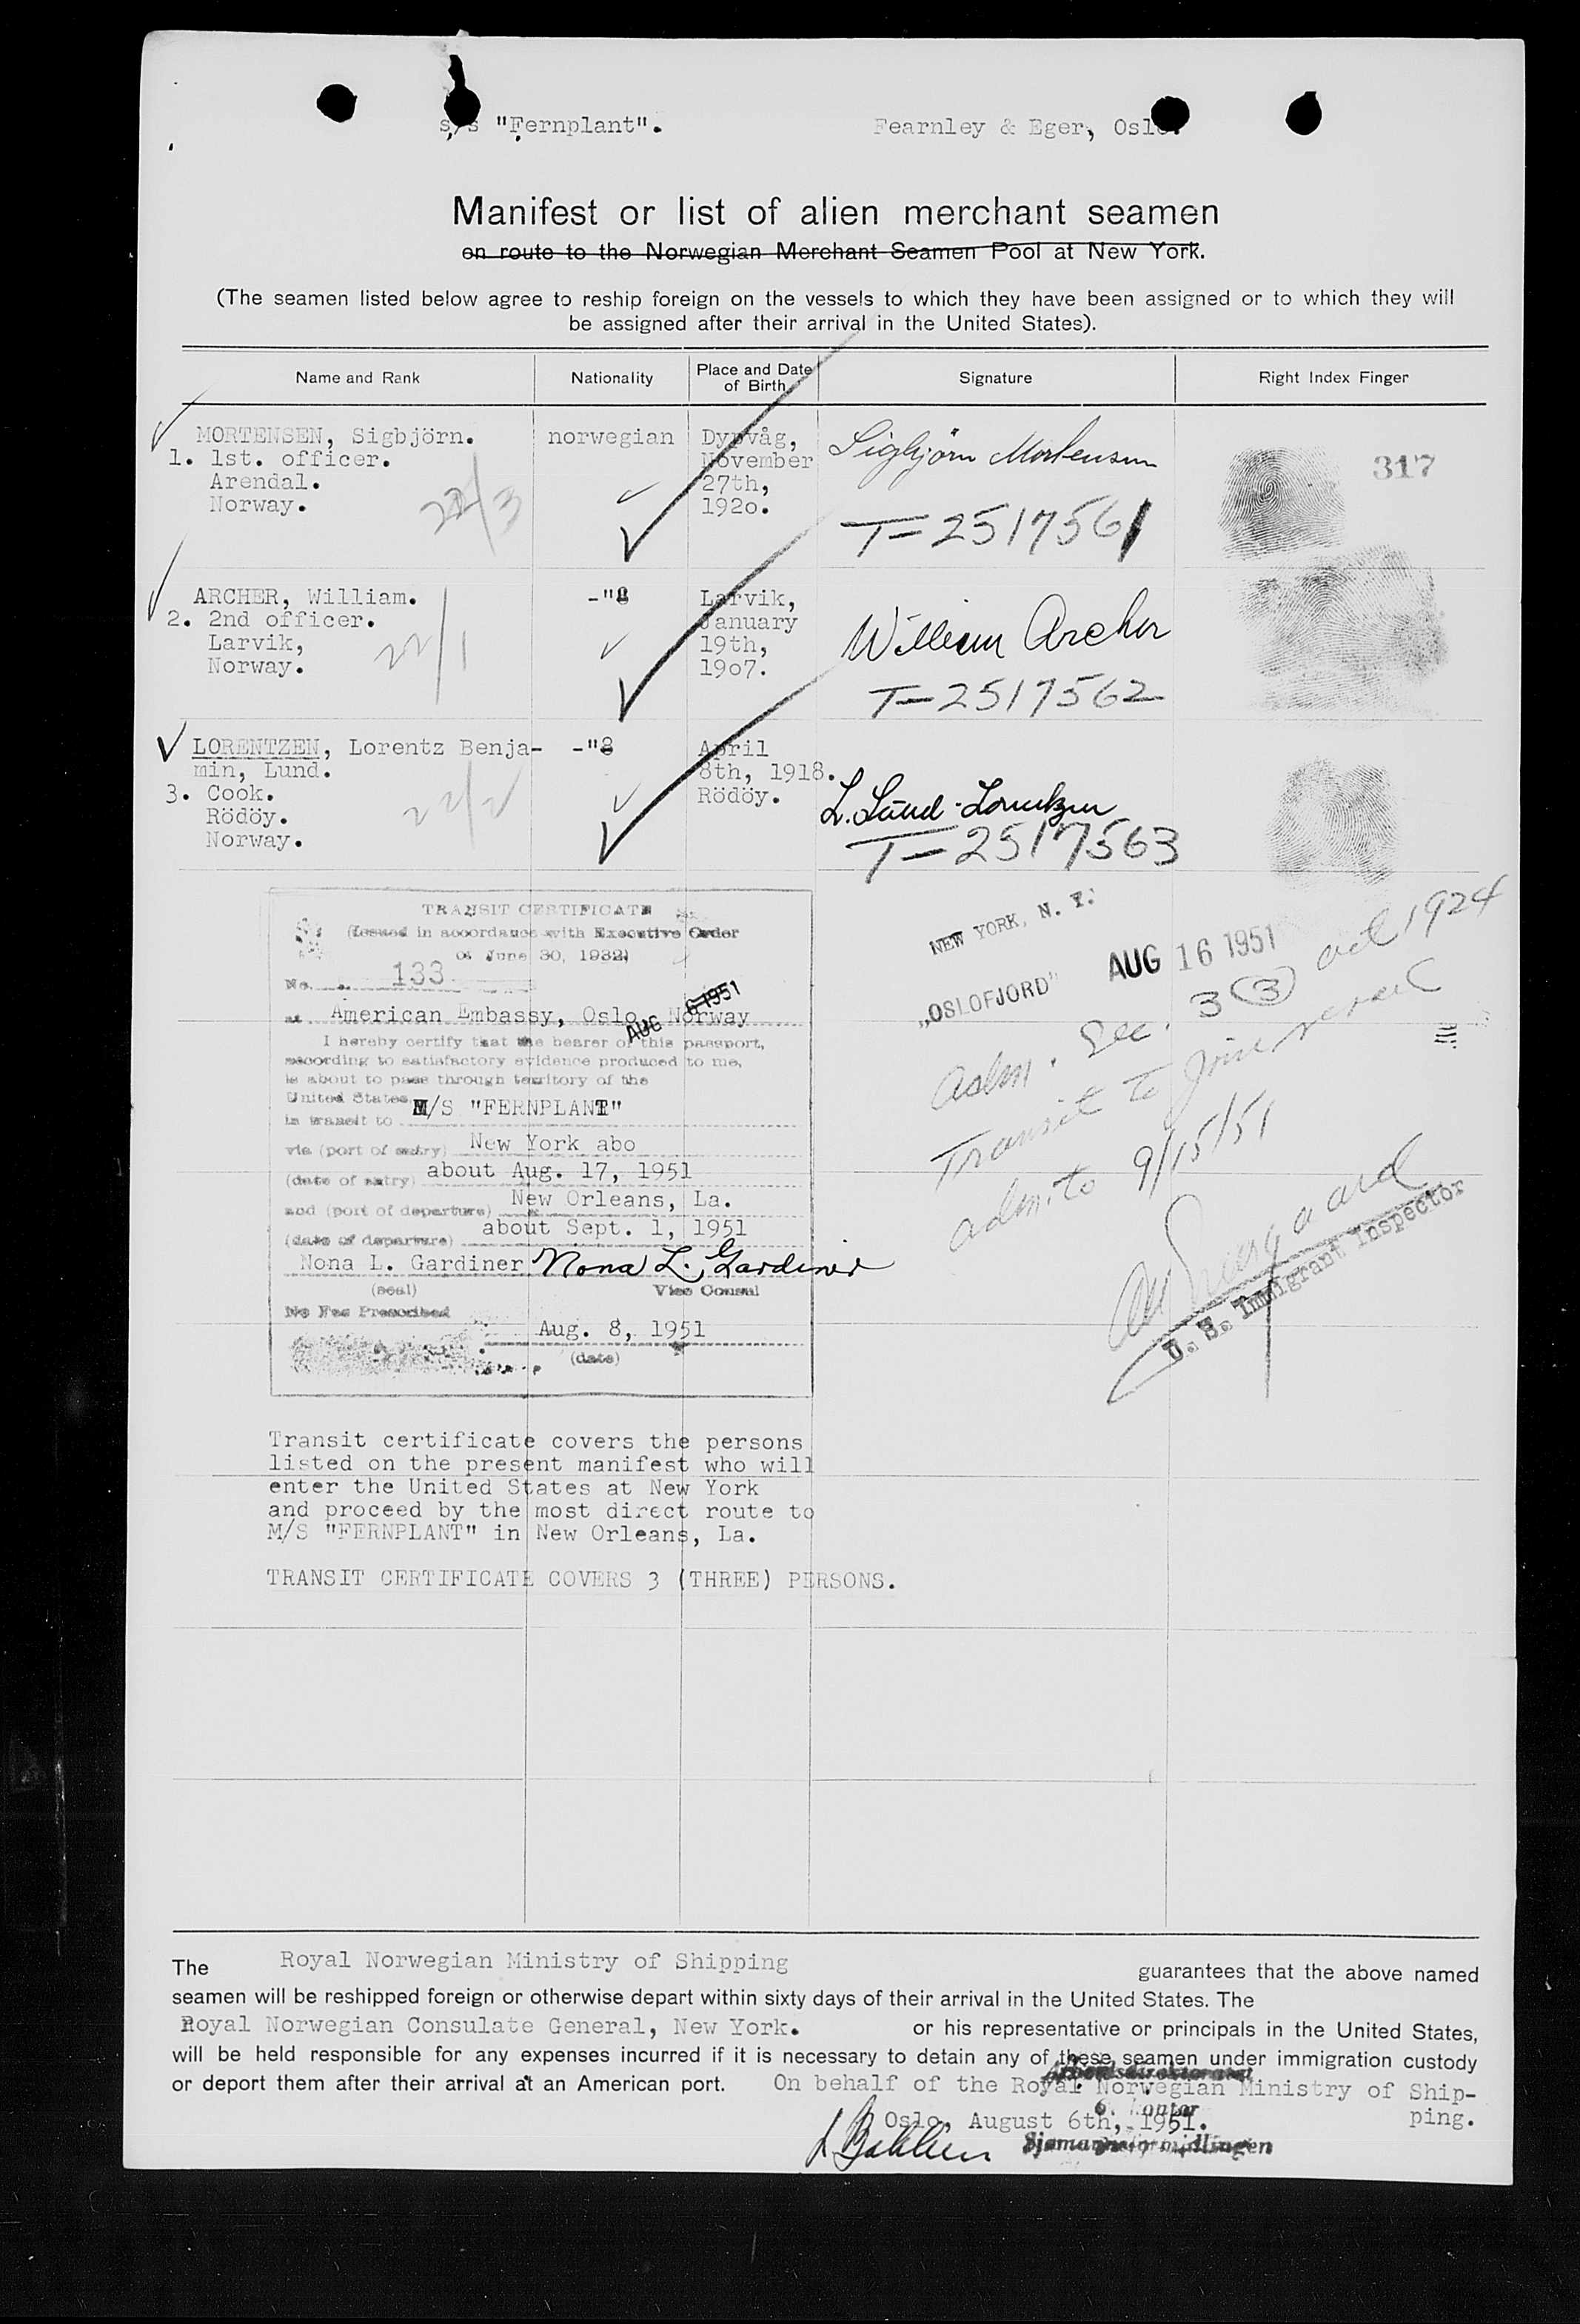 s/s "Fernplant". Fearnley & Eger, Oslo.
Manifest or list of alien merchant seamen
en route to the Norwegian Merchant Seamen Pool at New York.
(The seamen listed below agree to reship foreign on the vessels to which they have been assigned or to which they will
be assigned after their arrival in the United States).
Name and Rank
Nationality
Place and Date
of Birth
Signature
Right Index Finger
MORTENSEN, Sigbjörn.
1. 1st. officer.
Arendal.
Norway.
22/3
norwegian
Dypvåg,
November
27th,
192o.
Sigbjörn Mortensen
T-2517561
317
ARCHER, William.
2. 2nd officer.
Larvik,
Norway.
22/1
-"-
Larvik,
January
19th,
19o7.
William Archer
T-2517562
LORENTZEN, Lorentz Benja-
min, Lund.
3. Cook.
Rödöy.
Norway.
22/2
-"-
April
8th, 1918.
Rödöy.
L. Lund-Lorentzen
T-2517563
TRANSIT CERTIFICATE
(Issued in accordance with Executive Order
of June 30, 1932)
No. 133
AUG 6 1951
at American Embassy, Oslo, Norway
I hereby certify that the bearer of this passport,
according to satisfactory evidence produced to me,
is about to pass through territory of the
United States
in transit to M/S "FERNPLANT"
via (port of entry) New York abo
(date of entry) about Aug. 17, 1951
and (port of departure) New Orleans, La.
(date of departure) about Sept. 1, 1951
Nona L. Gardiner Nona L. Gardiner
(seal) Vice Consul
No Fee Prescribed
Aug. 8, 1951
(date)
NEW YORK, N. Y.
„OSLOFJORD" AUG 16 1951
Adm. Sec. 3 (3) act 1924
Transit to join vessel
adm. to 9/15/51
U. S. Immigrant Inspector
Transit certificate covers the persons
listed on the present manifest who will
enter the United States at New York
and proceed by the most direct route to
M/S "FERNPLANT" in New Orleans, La.
TRANSIT CERTIFICATE COVERS 3 (THREE) PERSONS.
The Royal Norwegian Ministry of Shipping guarantees that the above named
seamen will be reshipped foreign or otherwise depart within sixty days of their arrival in the United States. The
Royal Norwegian Consulate General, New York. or his representative or principals in the United States,
will be held responsible for any expenses incurred if it is necessary to detain any of these seamen under immigration custody
or deport them after their arrival at an American port. On behalf of the Royal Norwegian Ministry of Ship-
ping.
Arbeidsdirektoratet
6. kontor
Oslo, August 6th, 1951.
Sjømannsformidlingen